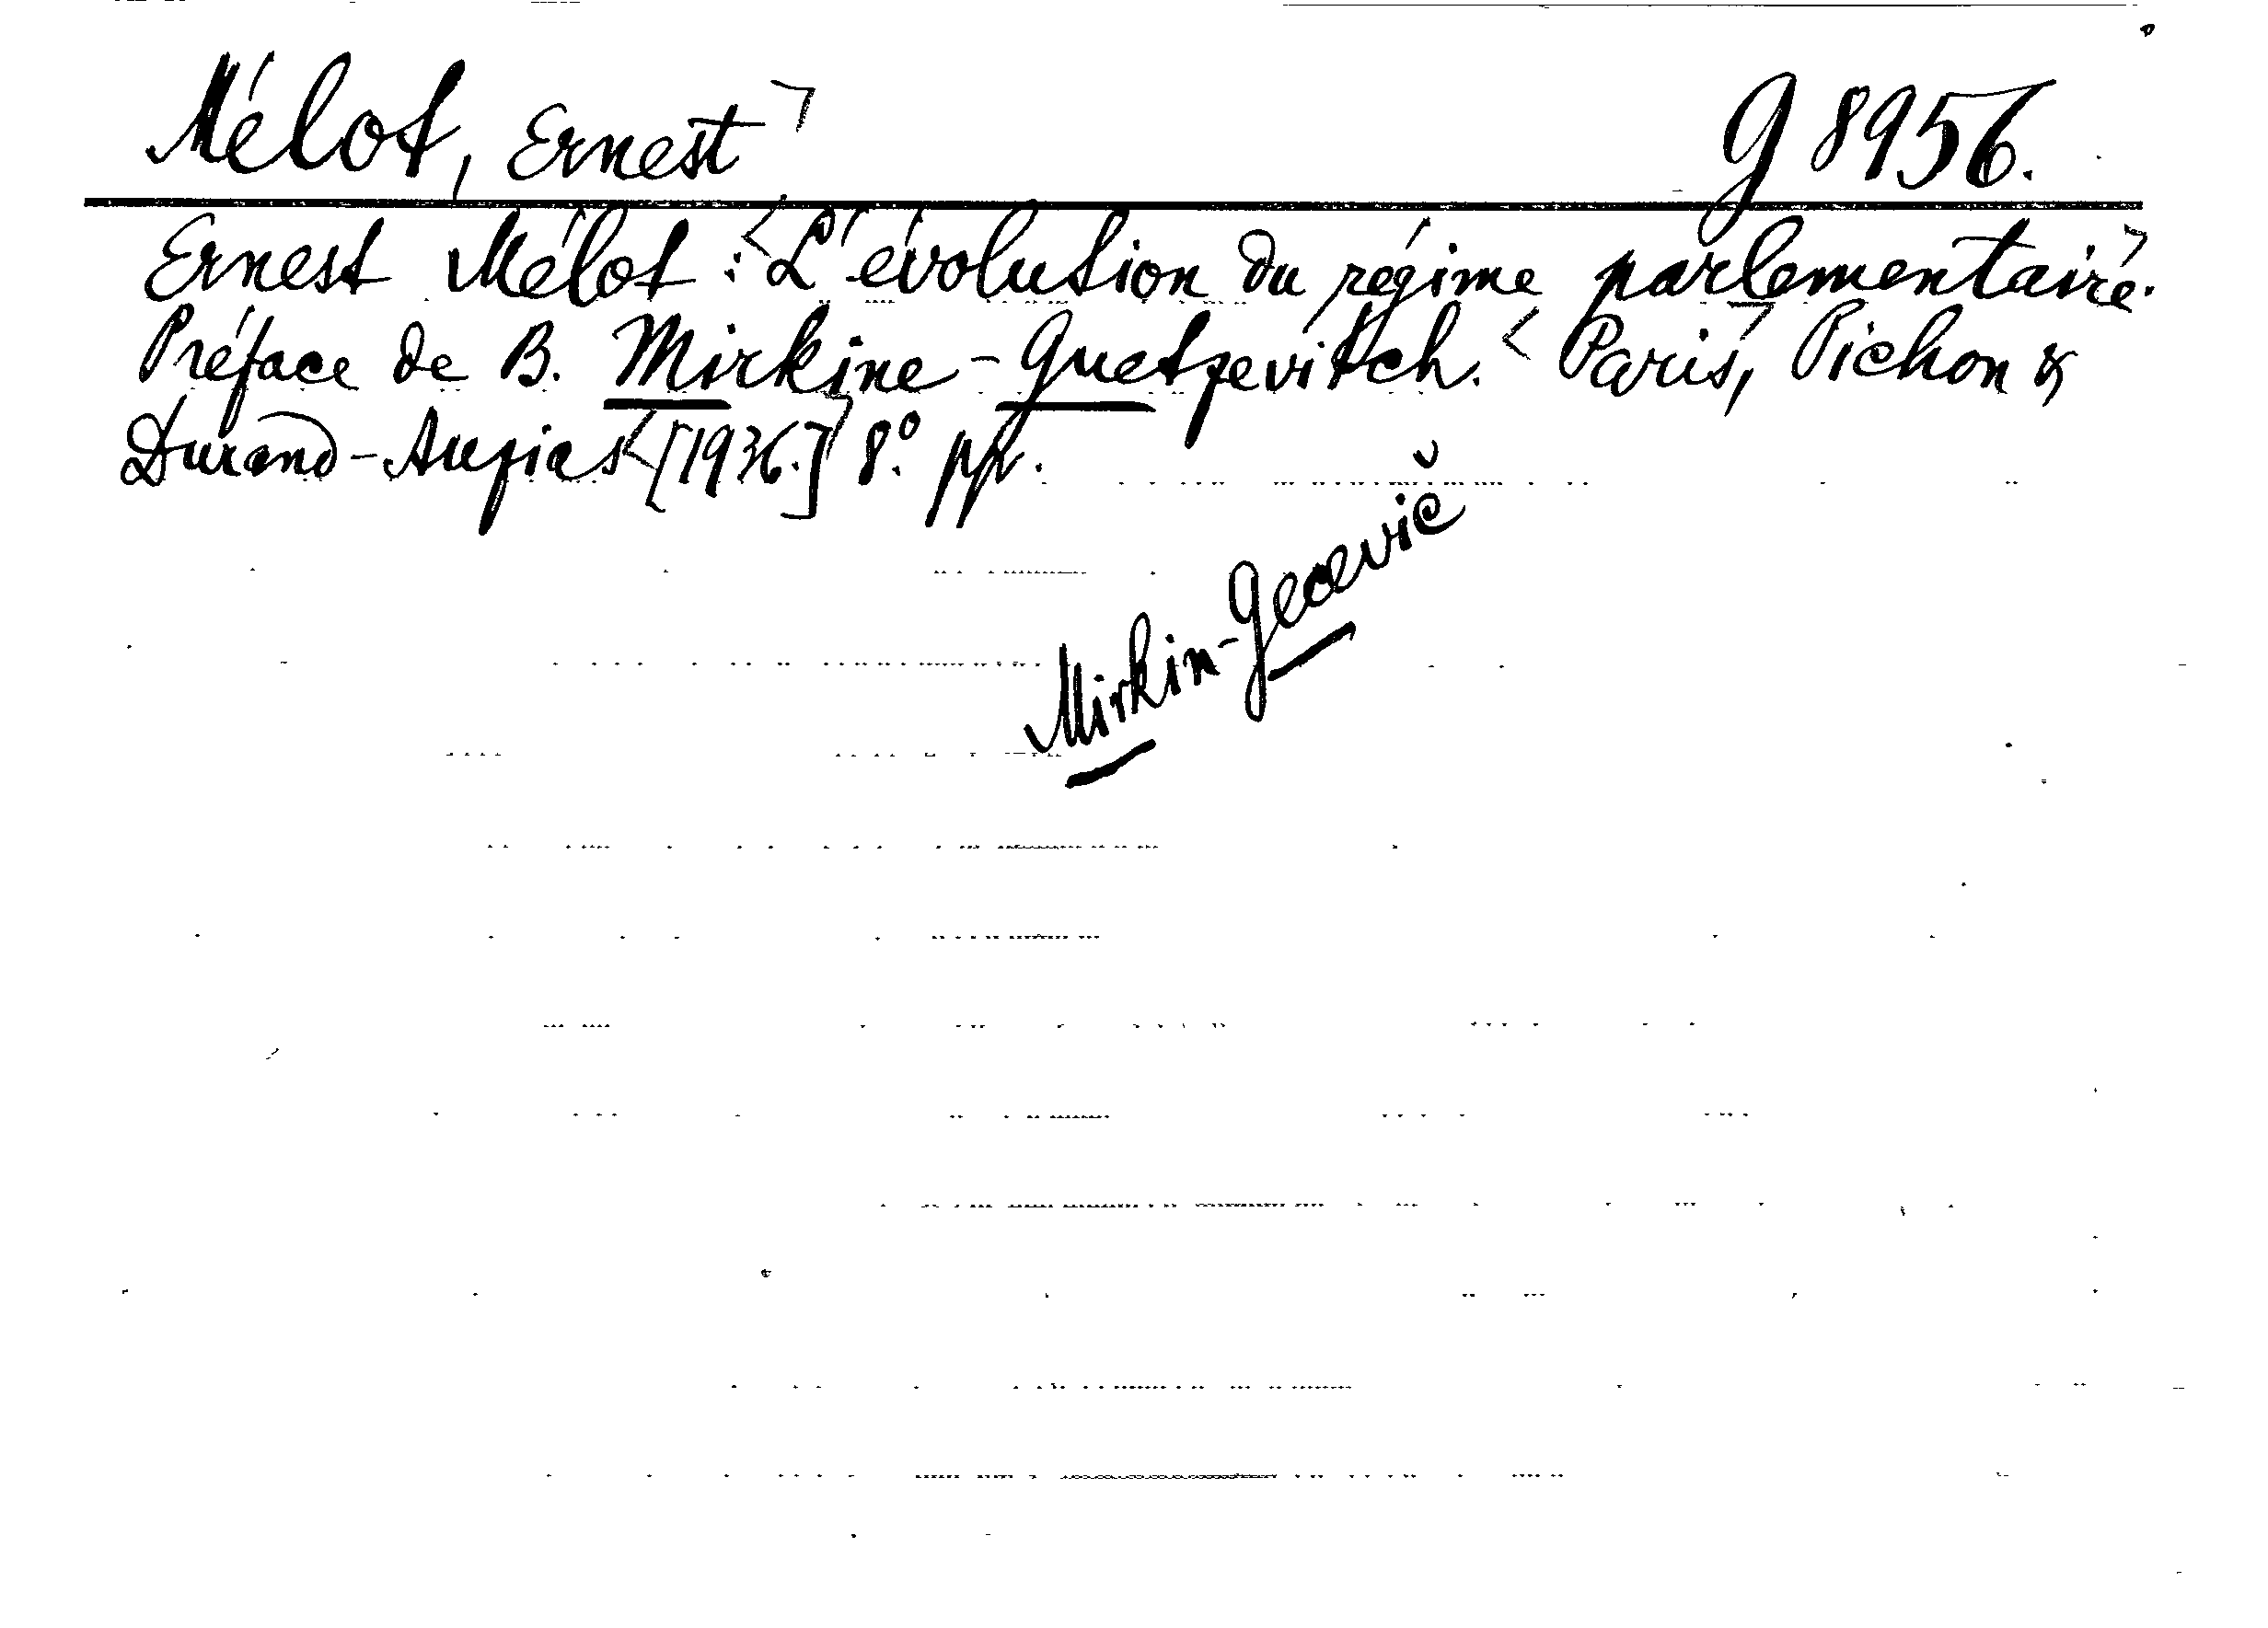 Mélot, Ernest g 8956.
Ernest Mélot : L'évolution du régime parlementaire.
Préface de B. Mirkine-Guetzevitch. Paris, Pichon &
Durand-Auzias [1936.] 8°. pp.
Mirkin-Gecevič